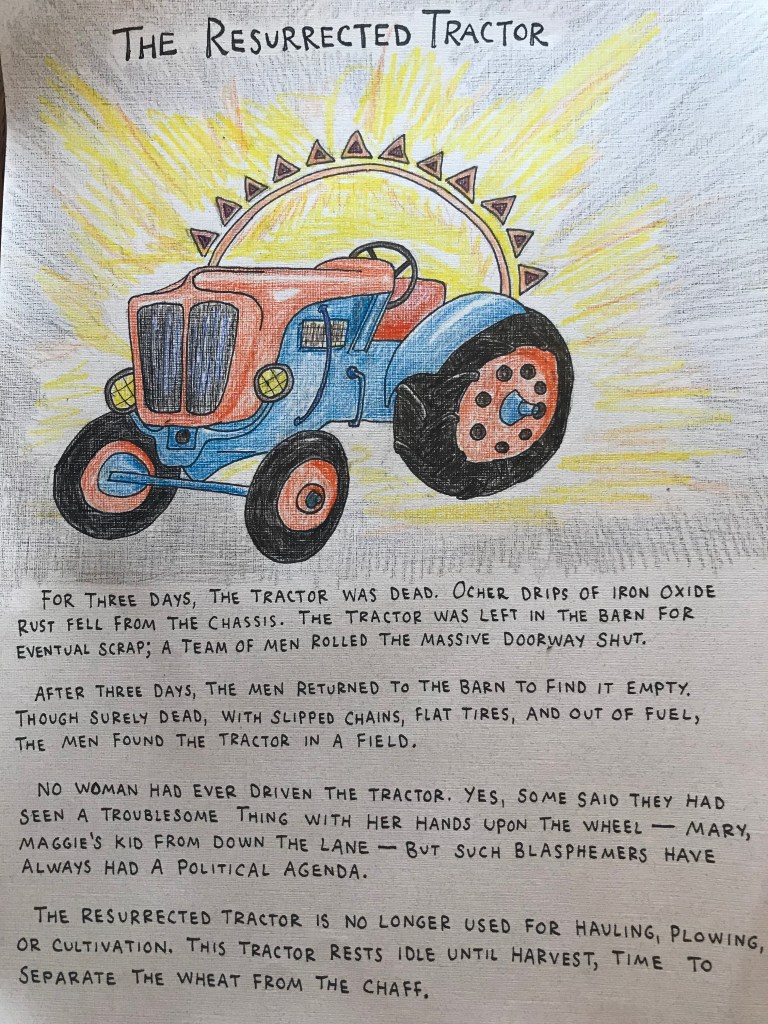 THE RESURRECTED TRACTOR
FOR THREE DAYS, THE TRACTOR WAS DEAD. OCHER DRIPS OF IRON OXIDE
RUST FELL FROM THE CHASSIS. THE TRACTOR WAS LEFT IN THE BARN FOR
EVENTUAL SCRAP; A TEAM OF MEN ROLLED THE MASSIVE DOORWAY SHUT.
AFTER THREE DAYS, THE MEN RETURNED TO THE BARN TO FIND IT EMPTY.
THOUGH SURELY DEAD, WITH SLIPPED CHAINS, FLAT TIRES, AND OUT OF FUEL,
THE MEN FOUND THE TRACTOR IN A FIELD.
NO WOMAN HAD EVER DRIVEN THE TRACTOR. YES, SOME SAID THEY HAD
SEEN A TROUBLESOME THING WITH HER HANDS UPON THE WHEEL — MARY,
MAGGIE'S KID FROM DOWN THE LANE — BUT SUCH BLASPHEMERS HAVE
ALWAYS HAD A POLITICAL AGENDA.
THE RESURRECTED TRACTOR IS NO LONGER USED FOR HAULING, PLOWING,
OR CULTIVATION. THIS TRACTOR RESTS IDLE UNTIL HARVEST, TIME TO
SEPARATE THE WHEAT FROM THE CHAFF.